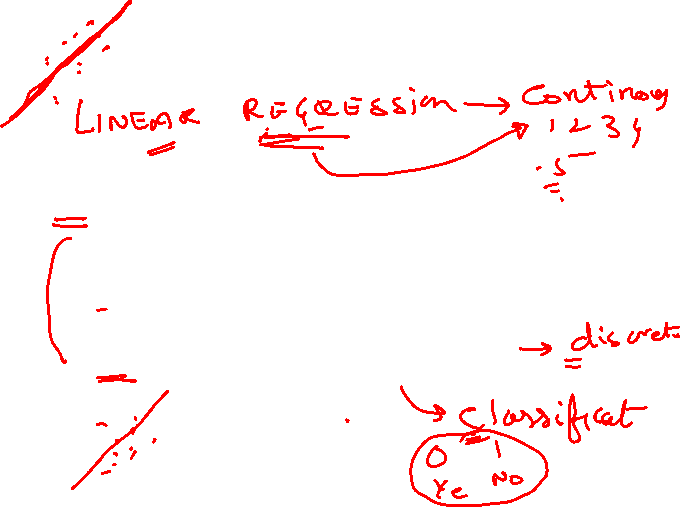 LINEAR REGRESSION → Continous
1 2 3 4
.5
→ discrete
Classificat
0 1
Ye No